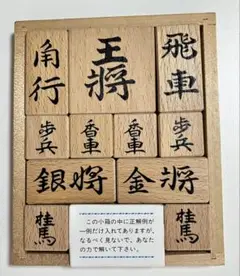 角行
王将
飛車
歩兵
香車
香車
歩兵
銀将
金将
桂馬
この小箱の中に正解例が
一例だけ入れてありますが、
なるべく見ないで、あなた
の力で解いて下さい。
桂馬